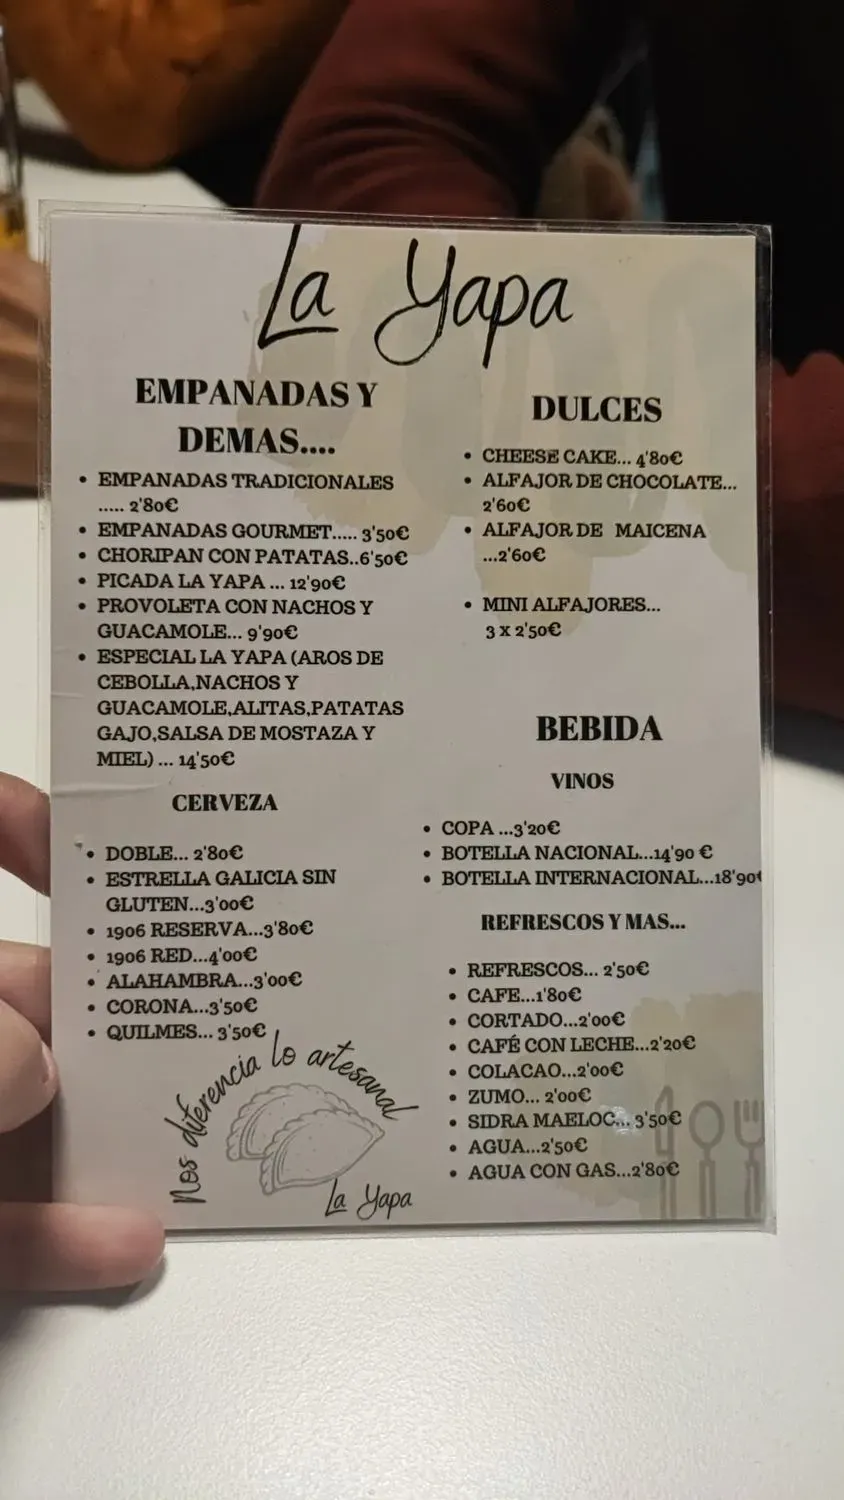 La Yapa
EMPANADAS Y
DEMAS....
• EMPANADAS TRADICIONALES
..... 2'80€
• EMPANADAS GOURMET..... 3'50€
• CHORIPAN CON PATATAS..6'50€
• PICADA LA YAPA ... 12'90€
• PROVOLETA CON NACHOS Y
GUACAMOLE... 9'90€
• ESPECIAL LA YAPA (AROS DE
CEBOLLA,NACHOS Y
GUACAMOLE,ALITAS,PATATAS
GAJO,SALSA DE MOSTAZA Y
MIEL) ... 14'50€
CERVEZA
• DOBLE... 2'80€
• ESTRELLA GALICIA SIN
GLUTEN...3'00€
• 1906 RESERVA...3'80€
• 1906 RED...4'00€
• ALAHAMBRA...3'00€
• CORONA...3'50€
• QUILMES... 3'50€
Nos diferencia lo artesanal
La Yapa
DULCES
• CHEESE CAKE... 4'80€
• ALFAJOR DE CHOCOLATE...
2'60€
• ALFAJOR DE MAICENA
...2'60€
• MINI ALFAJORES...
3 X 2'50€
BEBIDA
VINOS
• COPA ...3'20€
• BOTELLA NACIONAL...14'90 €
• BOTELLA INTERNACIONAL...18'90€
REFRESCOS Y MAS...
• REFRESCOS... 2'50€
• CAFE...1'80€
• CORTADO...2'00€
• CAFÉ CON LECHE...2'20€
• COLACAO...2'00€
• ZUMO... 2'00€
• SIDRA MAELOC... 3'50€
• AGUA...2'50€
• AGUA CON GAS...2'80€